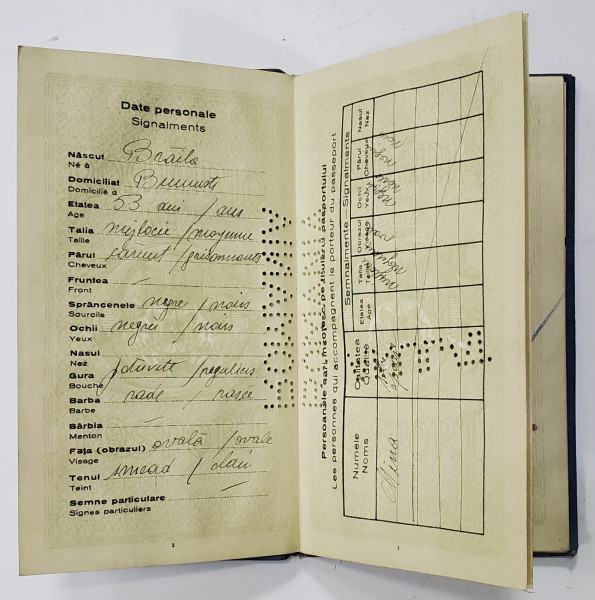 Date personale
Signalments
Născut Brăila
Né à
Domiciliat București
Domicilié à
Etatea 53 ani / ans
Age
Talia mijlocie / moyenne
Taille
Părul cărunt / grisonnants
Cheveux
Fruntea —
Front
Sprâncenele negre / noirs
Sourcils
Ochii negri / noirs
Yeux
Nasul
Nez
Gura potrivite / reguliers
Bouche
Barba rade / rasée
Barbe
Bărbia —
Menton
Fața (obrazul) ovală / ovale
Visage
Tenul smead / clair
Teint
Semne particulare —
Signes particuliers
2
Persoanele cari însoțesc pe titularul pașaportului
Les personnes qui accompagnent le porteur du passeport
Numele
Noms
Calitatea
Qualité
Semnalmente — Signalments
Etatea
Age
Talia
Taille
Obrazul
Visage
Ochii
Yeux
Părul
Cheveux
Nasul
Nez
3